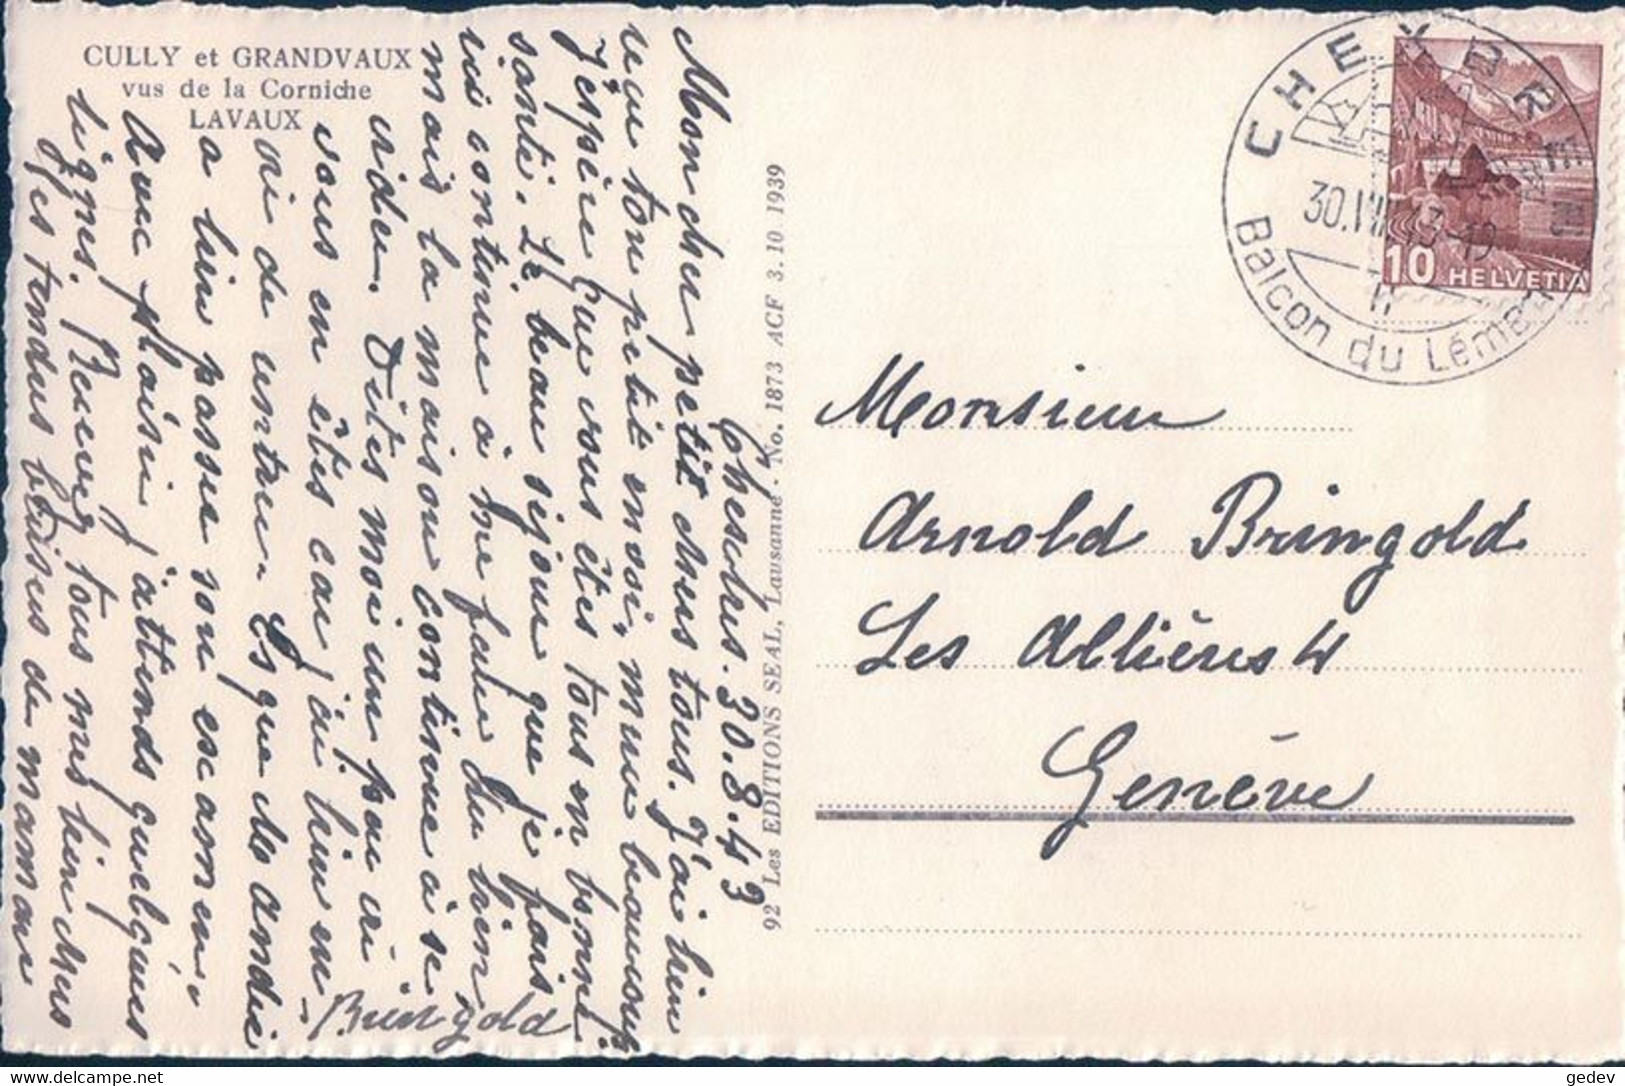 CULLY et GRANDVAUX
vus de la Corniche
LAVAUX
Chesbres. 30.8.43
Mon cher petit chers tous. J'ai bien
reçu ton petit envoi, merci beaucoup
J'éspère que vous êtes tous en bonne
santé. Le beau sejour que je fais
ici continue à me faire du bien
mais la maison continue à se
vider. Dites moi un peu où
vous en êtes car j'ai bien en-
vie de rentrer. Esque
a bien passé son escamen.
Avec plaisir j'attends quelques
lignes. Recevez tous mes bien chers
les tendres baisers de maman
Bringold
92 Les EDITIONS SEAL, Lausanne - No. 1873 ACF 3. 10 1939
CHEXBRES
30.VIII.43-19
Balcon du Léman
10 HELVETIA
Monsieur
Arnold Bringold
Les Allières 4
Genève
delcampe.net
gedev